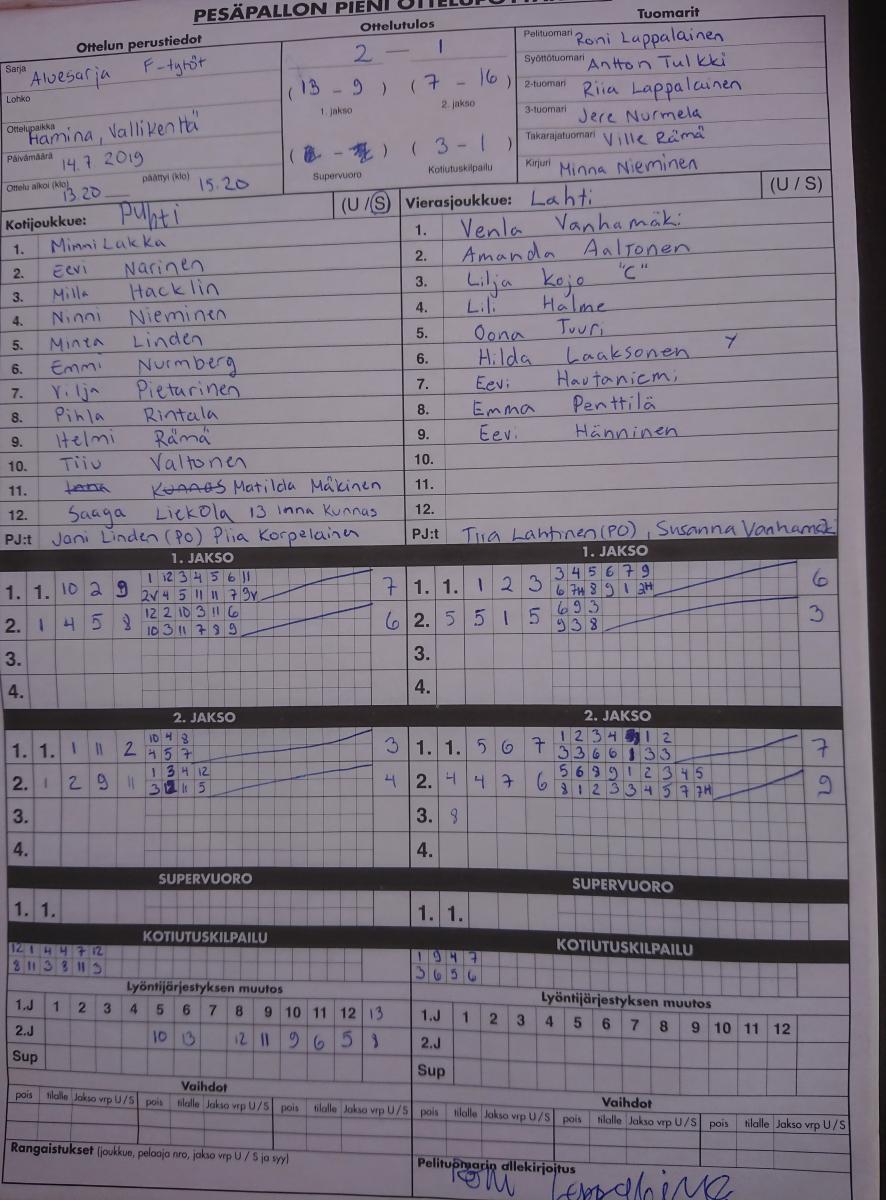 PESÄPALLON PIENI
Ottelun perustiedot
Sarja Aluesarja F-tytöt
Lohko
Ottelupaikka Hamina, Vallikenttä
Päivämäärä 14.7 2019
Ottelu alkoi (klo) 13.20 päättyi (klo) 15.20
Ottelutulos
2 — 1
(13 - 9) (7 - 16)
1. jakso 2. jakso
( - ) (3 - 1)
Supervuoro Kotiutuskilpailu
Tuomarit
Pelituomari Roni Lappalainen
Syöttötuomari Antton Tulkki
2-tuomari Riia Lappalainen
3-tuomari Jere Nurmela
Takarajatuomari Ville Rämä
Kirjuri Minna Nieminen
Kotijoukkue: Puhti (U / S)
1. Minni Lakka
2. Eevi Narinen
3. Milla Hacklin
4. Ninni Nieminen
5. Minea Linden
6. Emmi Nurmberg
7. Vilja Pietarinen
8. Pihla Rintala
9. Helmi Rämä
10. Tiiu Valtonen
11. Kunnas Matilda Mäkinen
12. Saaga Liekola 13 Inna Kunnas
PJ:t Jani Linden (PO) Piia Korpelainen
Vierasjoukkue: Lahti (U / S)
1. Venla Vanhamäki
2. Amanda Aaltonen
3. Lilja Kojo "C"
4. Lili Halme
5. Oona Tuuri
6. Hilda Laaksonen Y
7. Eevi Hautaniemi
8. Emma Penttilä
9. Eevi Hänninen
10.
11.
12.
PJ:t Tiia Lahtinen (PO), Susanna Vanhamäki
1. JAKSO
1 12 3 4 5 6 11
1. 1. 10 2 9 2V 4 5 11 11 7 9V 7
12 2 10 3 11 6
2. 1 4 5 8 10 3 11 7 8 9 6
3.
4.
1. JAKSO
3 4 5 6 7 9
1. 1. 1 2 3 6 7H 8 9 1 2H 6
6 9 3
2. 5 5 1 5 9 3 8 3
3.
4.
2. JAKSO
10 4 8
1. 1. 1 11 2 4 5 7 3
1 3 4 12
2. 1 2 9 11 3 11 5 4
3.
4.
2. JAKSO
1 2 3 4 1 2
1. 1. 5 6 7 3 3 6 6 1 3 3 7
5 6 8 9 1 2 3 4 5
2. 4 4 7 6 8 1 2 3 3 4 5 7 7H 9
3. 8
4.
SUPERVUORO
1. 1.
SUPERVUORO
1. 1.
KOTIUTUSKILPAILU
12 1 4 4 7 12
8 11 3 8 11 3
KOTIUTUSKILPAILU
1 9 4 7
3 6 5 6
Lyöntijärjestyksen muutos
1.J 1 2 3 4 5 6 7 8 9 10 11 12 13
2.J 10 13 12 11 9 6 5 8
Sup
Lyöntijärjestyksen muutos
1.J 1 2 3 4 5 6 7 8 9 10 11 12
2.J
Sup
Vaihdot
pois tilalle Jakso vrp U / S pois tilalle Jakso vrp U / S pois tilalle Jakso vrp U / S
Vaihdot
pois tilalle Jakso vrp U / S pois tilalle Jakso vrp U / S pois tilalle Jakso vrp U / S
Rangaistukset (joukkue, pelaaja nro, jakso vrp U / S ja syy)
Pelituomarin allekirjoitus